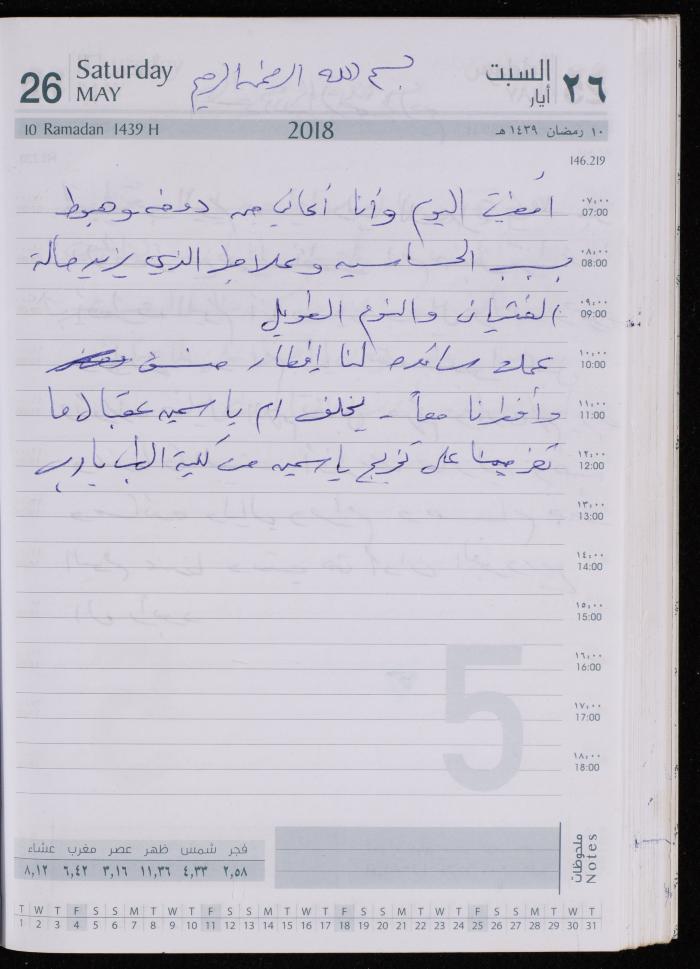 26
Saturday
MAY
بسم الله الرحمن الرحيم
السبت
أيار
٢٦
10 Ramadan 1439 H
2018
١٠ رمضان ١٤٣٩ هـ
146.219
أمضيت اليوم وأنا أعاني من دوخة وهبوط
٠٧:٠٠
07:00
بسبب الحساسيه وعلاجها الذي يزيد حالة
٠٨:٠٠
08:00
الغثيان والنوم الطويل
٠٩:٠٠
09:00
عملت سائده لنا إفطار
١٠:٠٠
10:00
وأفطرنا معاً - يخلف ام ياسمين عقبال ما
١١:٠٠
11:00
تعزمينا على تخريج ياسمين من كلية الطب يا رب
١٢:٠٠
12:00
١٣:٠٠
13:00
١٤:٠٠
14:00
١٥:٠٠
15:00
١٦:٠٠
16:00
١٧:٠٠
17:00
١٨:٠٠
18:00
5
فجر شمس ظهر عصر مغرب عشاء
٢,٥٨ ٤,٣٣ ١١,٣٦ ٣,١٦ ٦,٤٢ ٨,١٢
ملحوظات
Notes
T W T F S S M T W T F S S M T W T F S S M T W T F S S M T W T
1 2 3 4 5 6 7 8 9 10 11 12 13 14 15 16 17 18 19 20 21 22 23 24 25 26 27 28 29 30 31